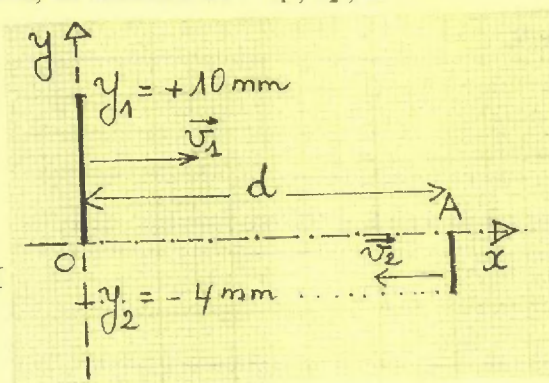 y
y₁ = +10 mm
v₁
d
A
O
v₂
x
y₂ = -4 mm